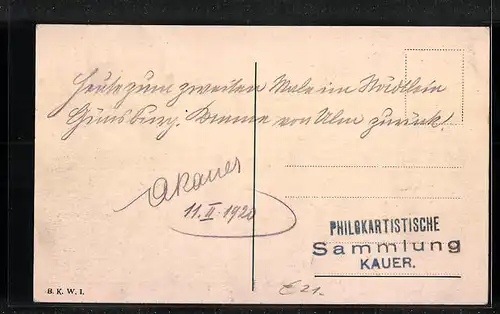 Heute zum zweiten Male im Städtlein
Günsburg. Komme von Ulm zurück!
AKauer
11. II. 1920
PHILOKARTISTISCHE
Sammlung
KAUER.
B. K. W. I.
€ 21.-